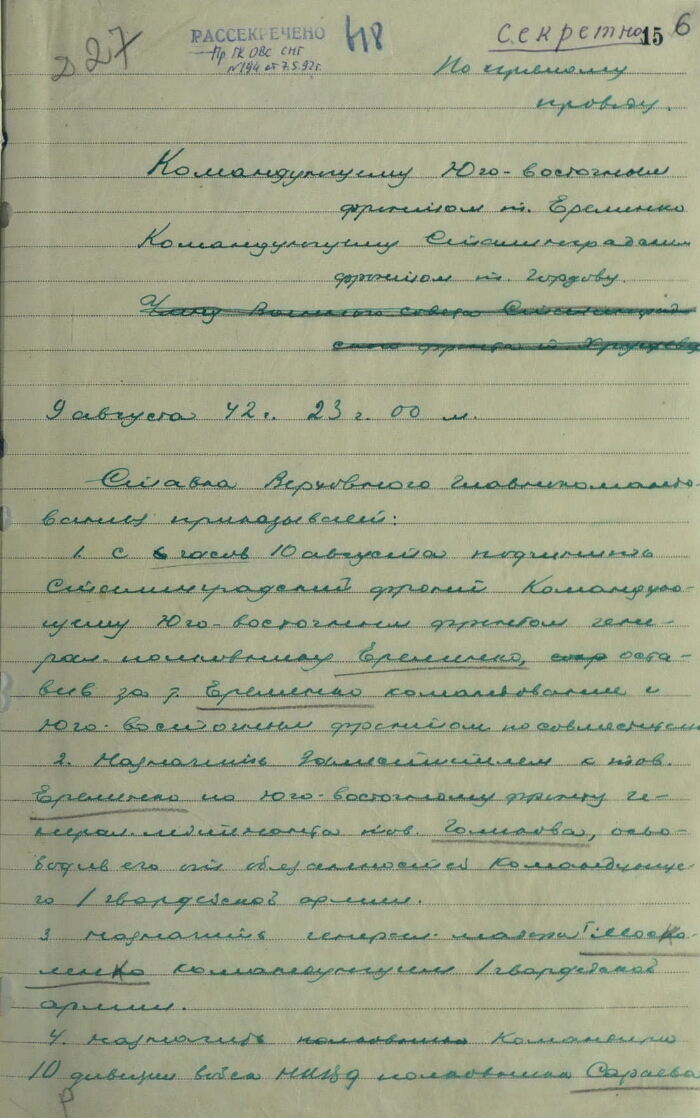 Д 27
РАССЕКРЕЧЕНО
Пр ГК ОВС СНГ
№194 от 7.5.92г.
418
Секретно
15 6
По прямому
проводу.
Командующему Юго-восточным
фронтом т. Еременко
Командующему Сталинградским
фронтом т. Гордову.
Члену Военного совета Сталинград-
ского фронта т Хрущеву
9 августа 42 г. 23 г. 00 м.
Ставка Верховного Главнокомандо-
вания приказывает:
1. С 6 часов 10 августа подчинить
Сталинградский фронт Командую-
щему Юго-восточным фронтом гене-
рал-полковнику Еременко, оста-
вив за т. Еременко командование и
Юго-восточным фронтом по совместит
2. Назначить Заместителем к тов.
Еременко по Юго-восточному фронту ге-
нерал-лейтенанта тов. Голикова, осво-
бодив его от обязанностей Командующе-
го 1 гвардейской армии.
3 Назначить генерал-майора т. Моска-
ленко командующим 1 гвардейской
армии.
4. Назначить полковника Командира
10 дивизии войск НКВД полковника Сараева